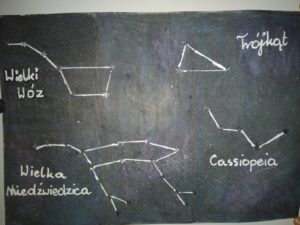 Wielki
Wóz
Trójkąt
Wielka
Niedźwiedzica
Cassiopeia